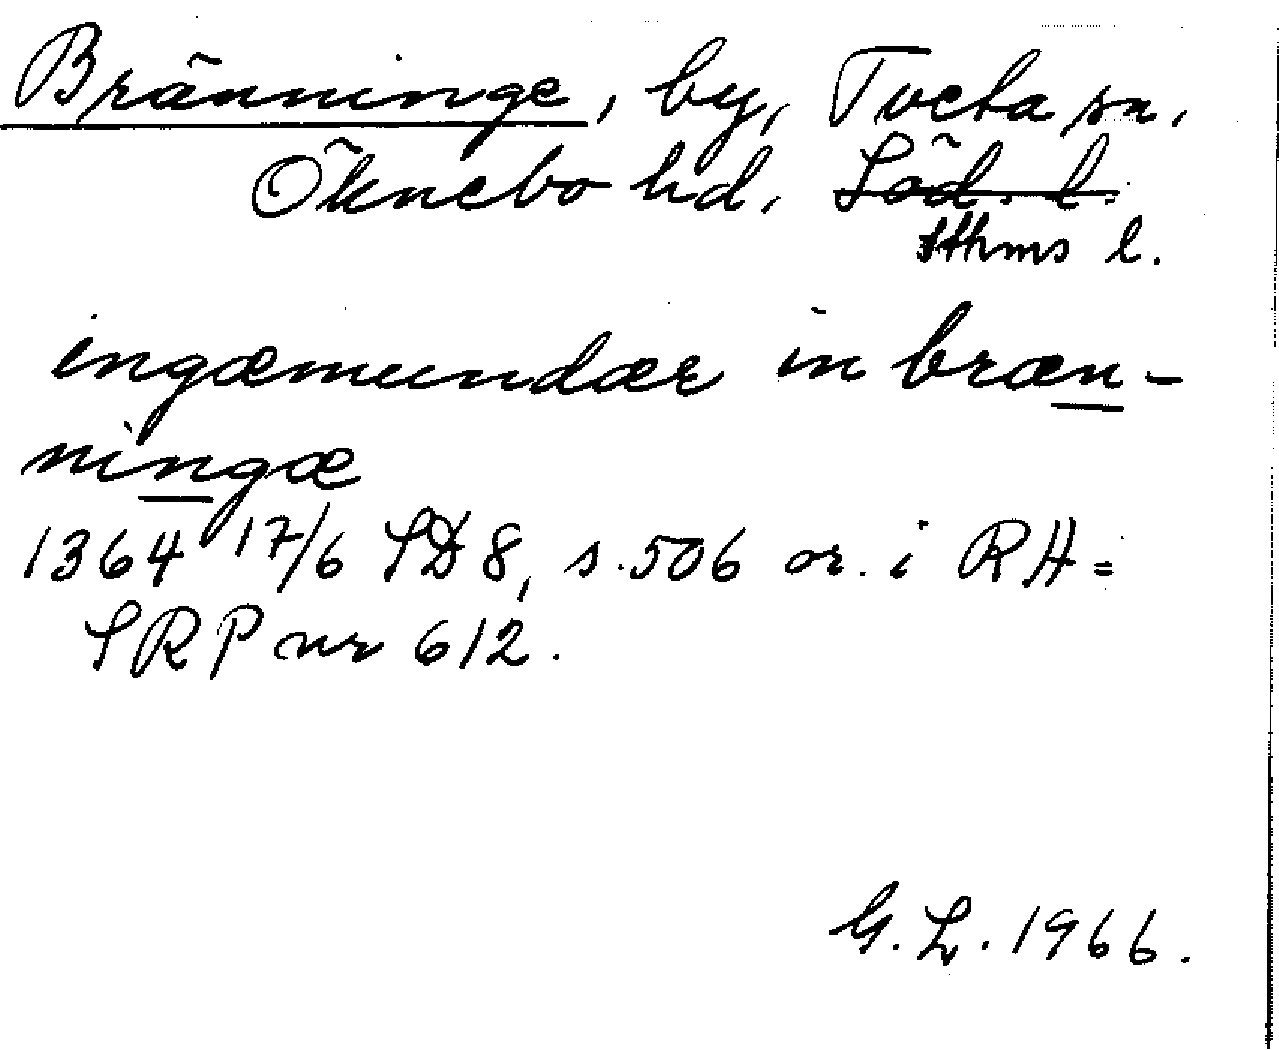 Bränninge, by, Tveta sn,
Öknebo hd, Söd. l.
Sthms l.
ingæmundær in bræn-
ningæ
1364 17/6 SD 8, s. 506 or. i RA =
SRP nr 612.
G. L. 1966.